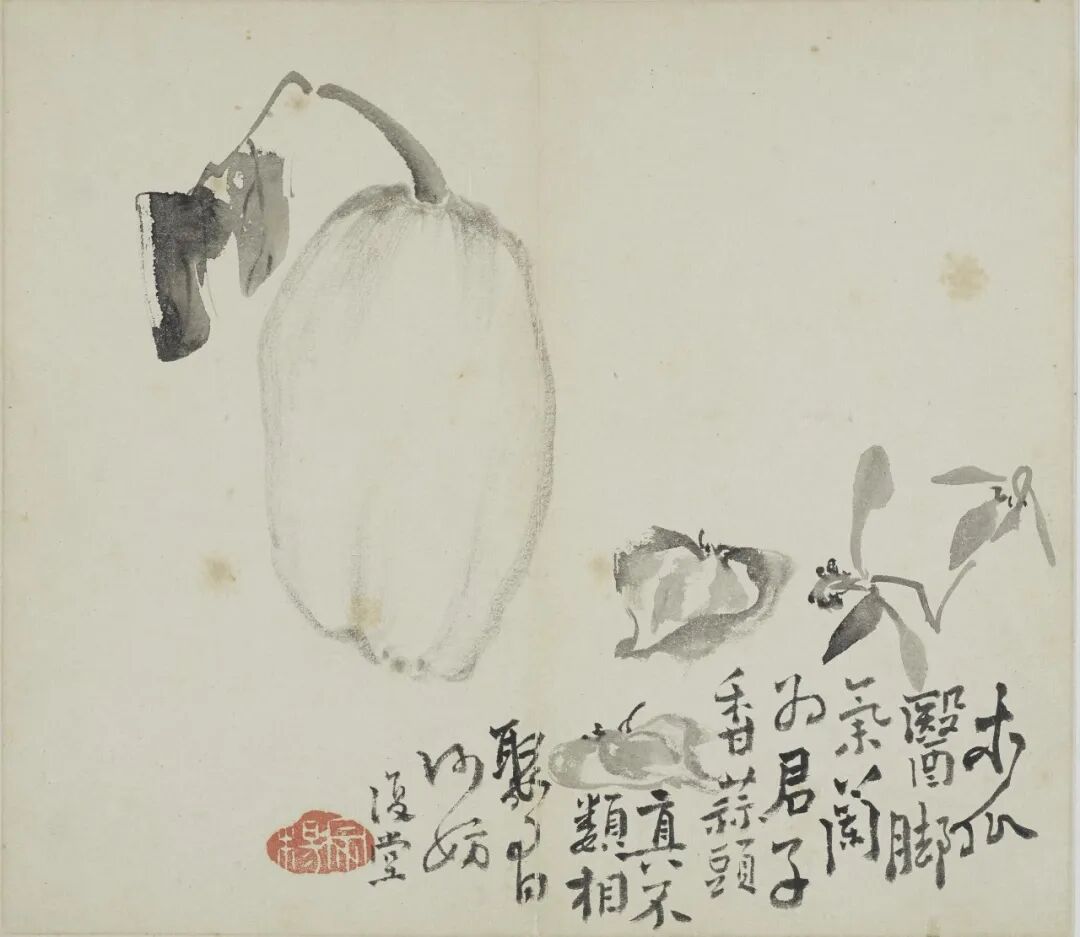 木瓜
醫脚
氣蘭
為君子
香蒜頭
真不
類相
聚
何妨
復堂